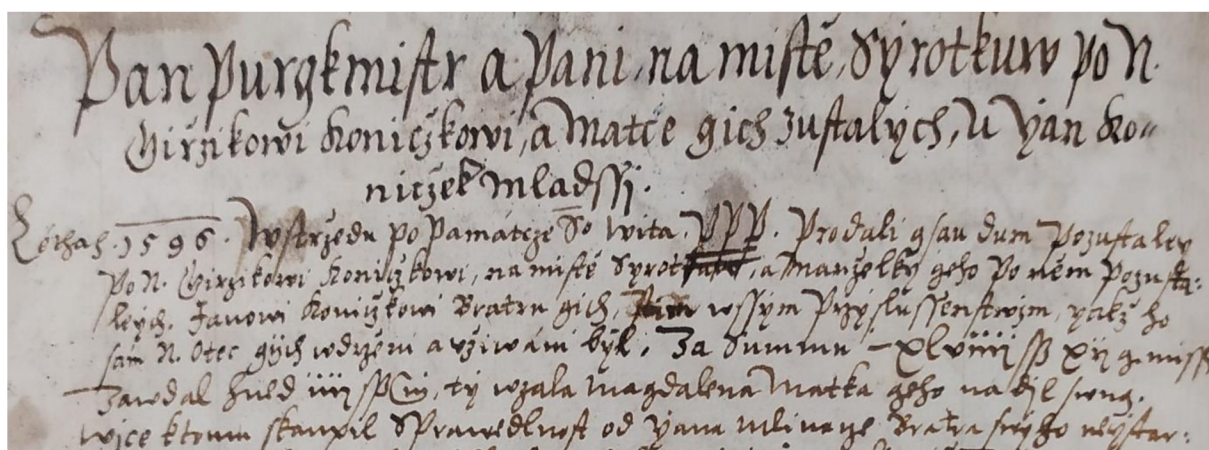 Pan Purgkmistr a Pani, na mistě, Syrotkuw po N.
Girzikowi Koniczkowi, a Matce gich zustalych, U Yan Ko„
niczek Mladssj.
Letha. 1596. W strzedu po Pamatcze So Wita. PPP. Prodali gsau dum Pozustaley
po N. Girzikowi Koniczkowi, na mistě Syrotkuw, a Manzelky geho Po něm pozusta:
leych. Janowi Koniczkowi Bratru gich, wssym Przyslussenstwim, yakž ho
sam N. Otec gých w drzeni a vziwáni býl. Za Summu xlviiij ss xij g. miss
Zawdal hned iiij ss, ty wzala Magdalena Matka geho na djl swug.
wjce k tomu skaupil Sprawedlnost od Yana Bratra swýho neystar: